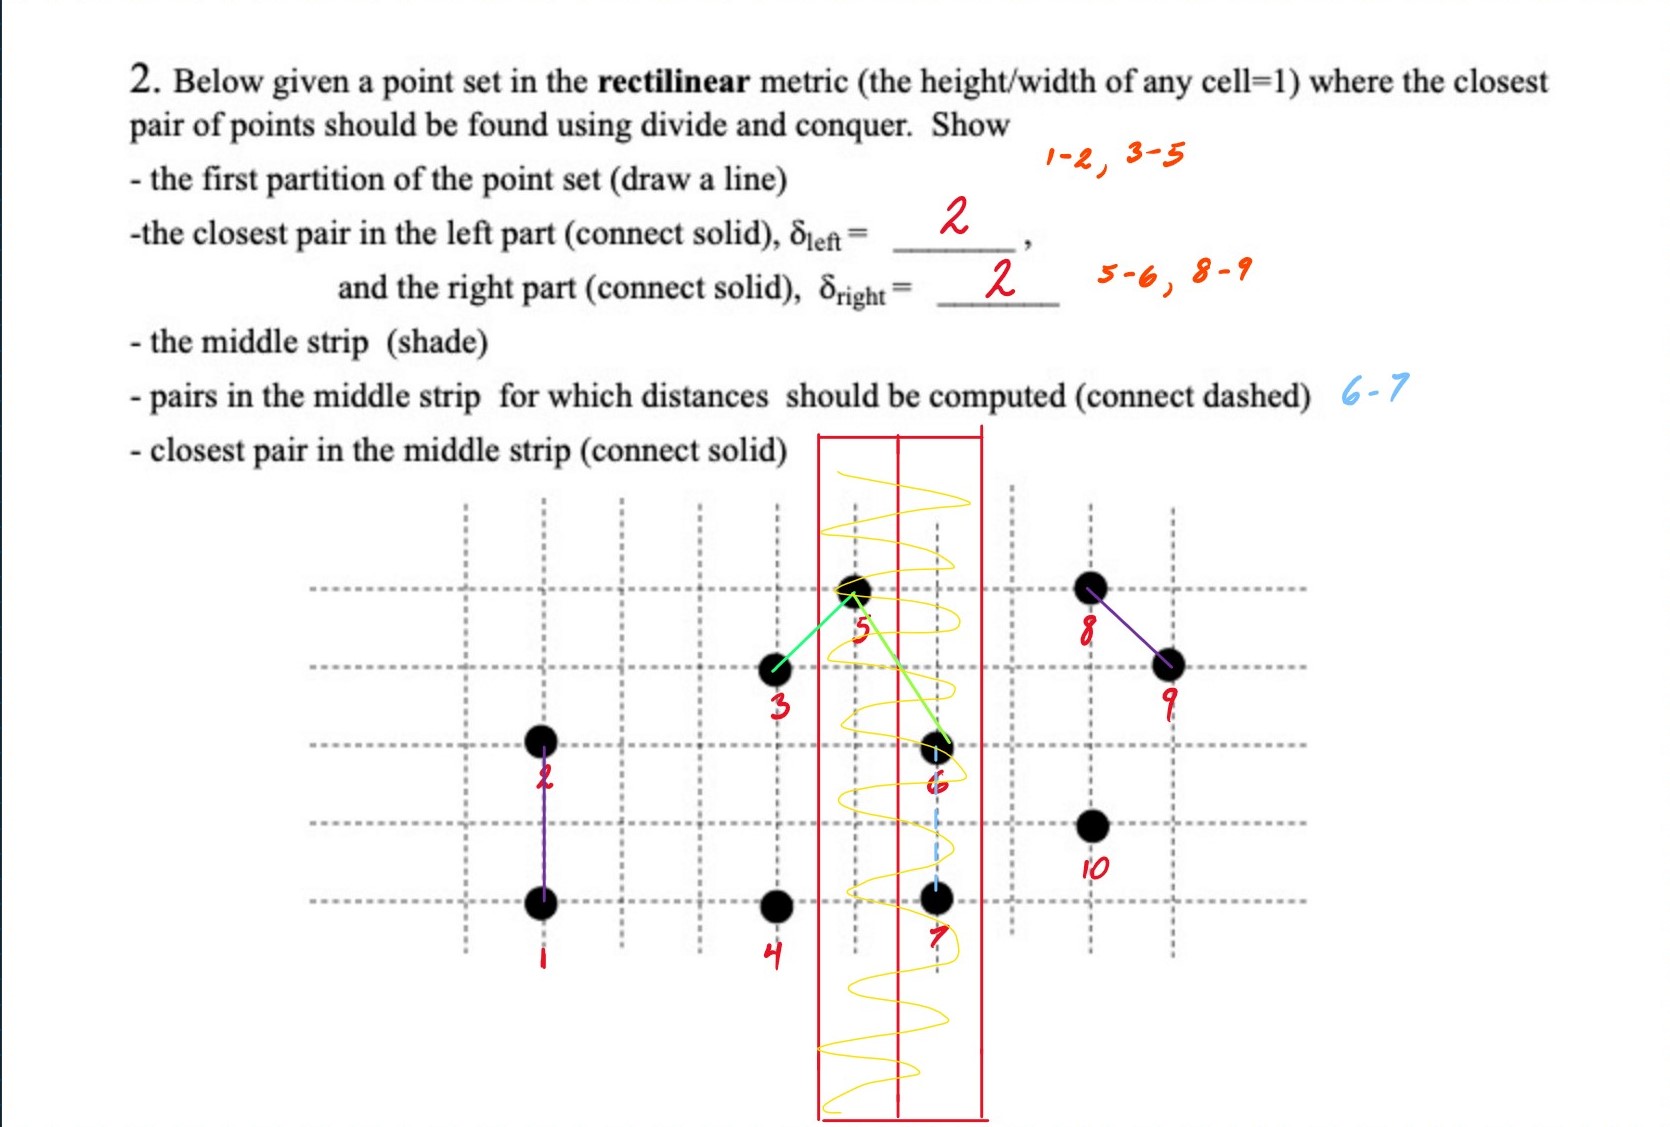 2. Below given a point set in the rectilinear metric (the height/width of any cell=1) where the closest
pair of points should be found using divide and conquer. Show
1-2, 3-5
- the first partition of the point set (draw a line)
-the closest pair in the left part (connect solid), δleft = 2,
and the right part (connect solid), δright = 2 5-6, 8-9
- the middle strip (shade)
- pairs in the middle strip for which distances should be computed (connect dashed) 6-7
- closest pair in the middle strip (connect solid)
5
8
3
9
2
6
10
1
4
7